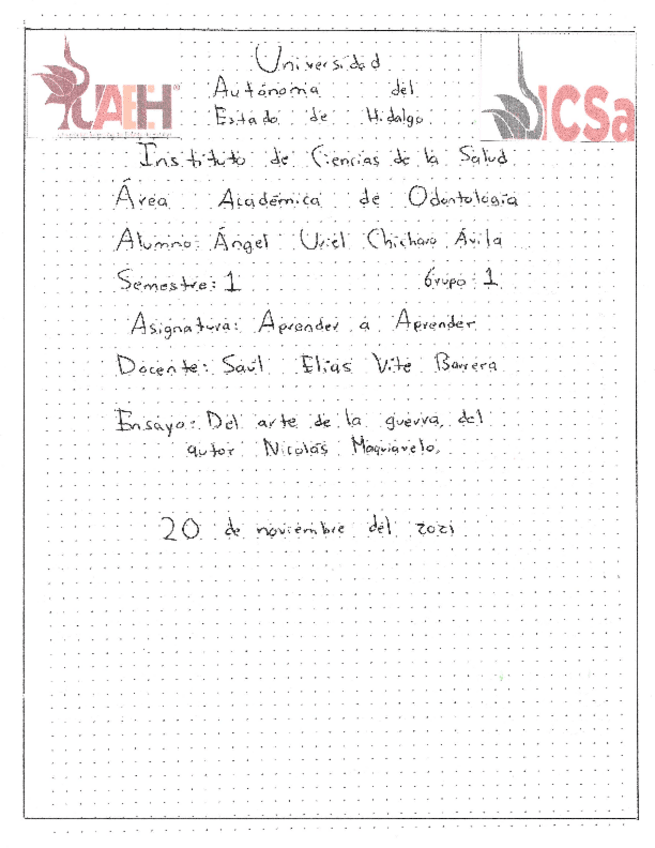 Universidad
UAEH Autónoma del ICSa
Estado de Hidalgo
Instituto de Ciencias de la Salud
Área Académica de Odontología
Alumno: Ángel Uriel Chicharo Ávila
Semestre: 1 Grupo: 1
Asignatura: Aprender a Aprender
Docente: Saúl Elías Vite Barrera
Ensayo: Del arte de la guerra, del
autor Nicolás Maquiavelo.
20 de noviembre del 2021